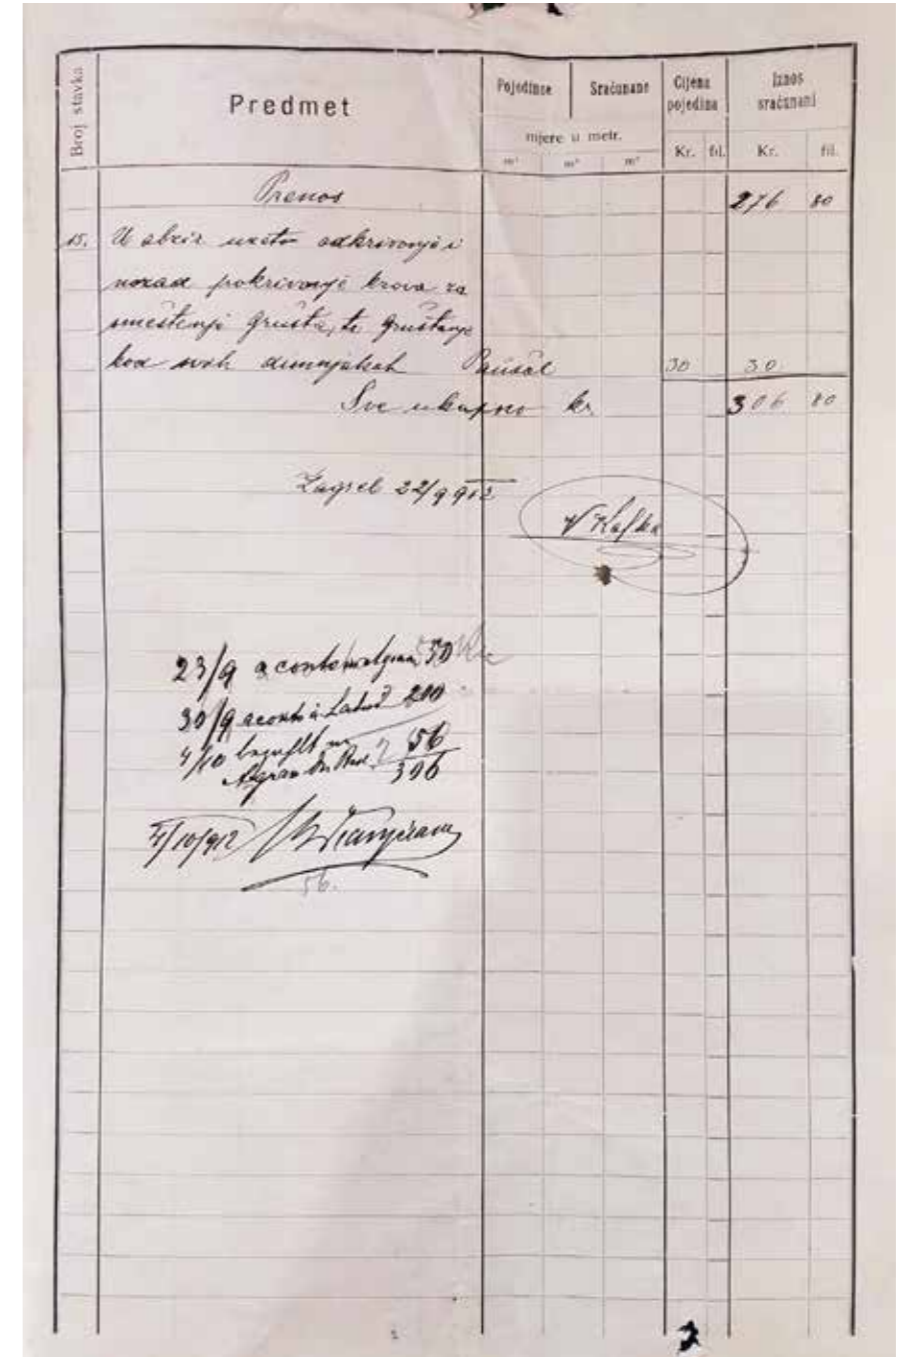 Broj stavka
Predmet
Pojedince Sračunane
mjere u metr.
m¹ m² m³
Cijena pojedina
Kr. fil.
Iznos sračunani
Kr. fil.
Prenos 276 80
15. U obzir uzeto odkrivanje i
nazad pokrivanje krova za
smeštenje grušta, te gruštanje
kod svih dimnjakah Paušal 30 30
Sve ukupno kr 306 80
Zagreb 22/9 912
V Kafka
23/9 a conto 50
30/9 a conto 200
4/10 56
306
4/10/912
56.